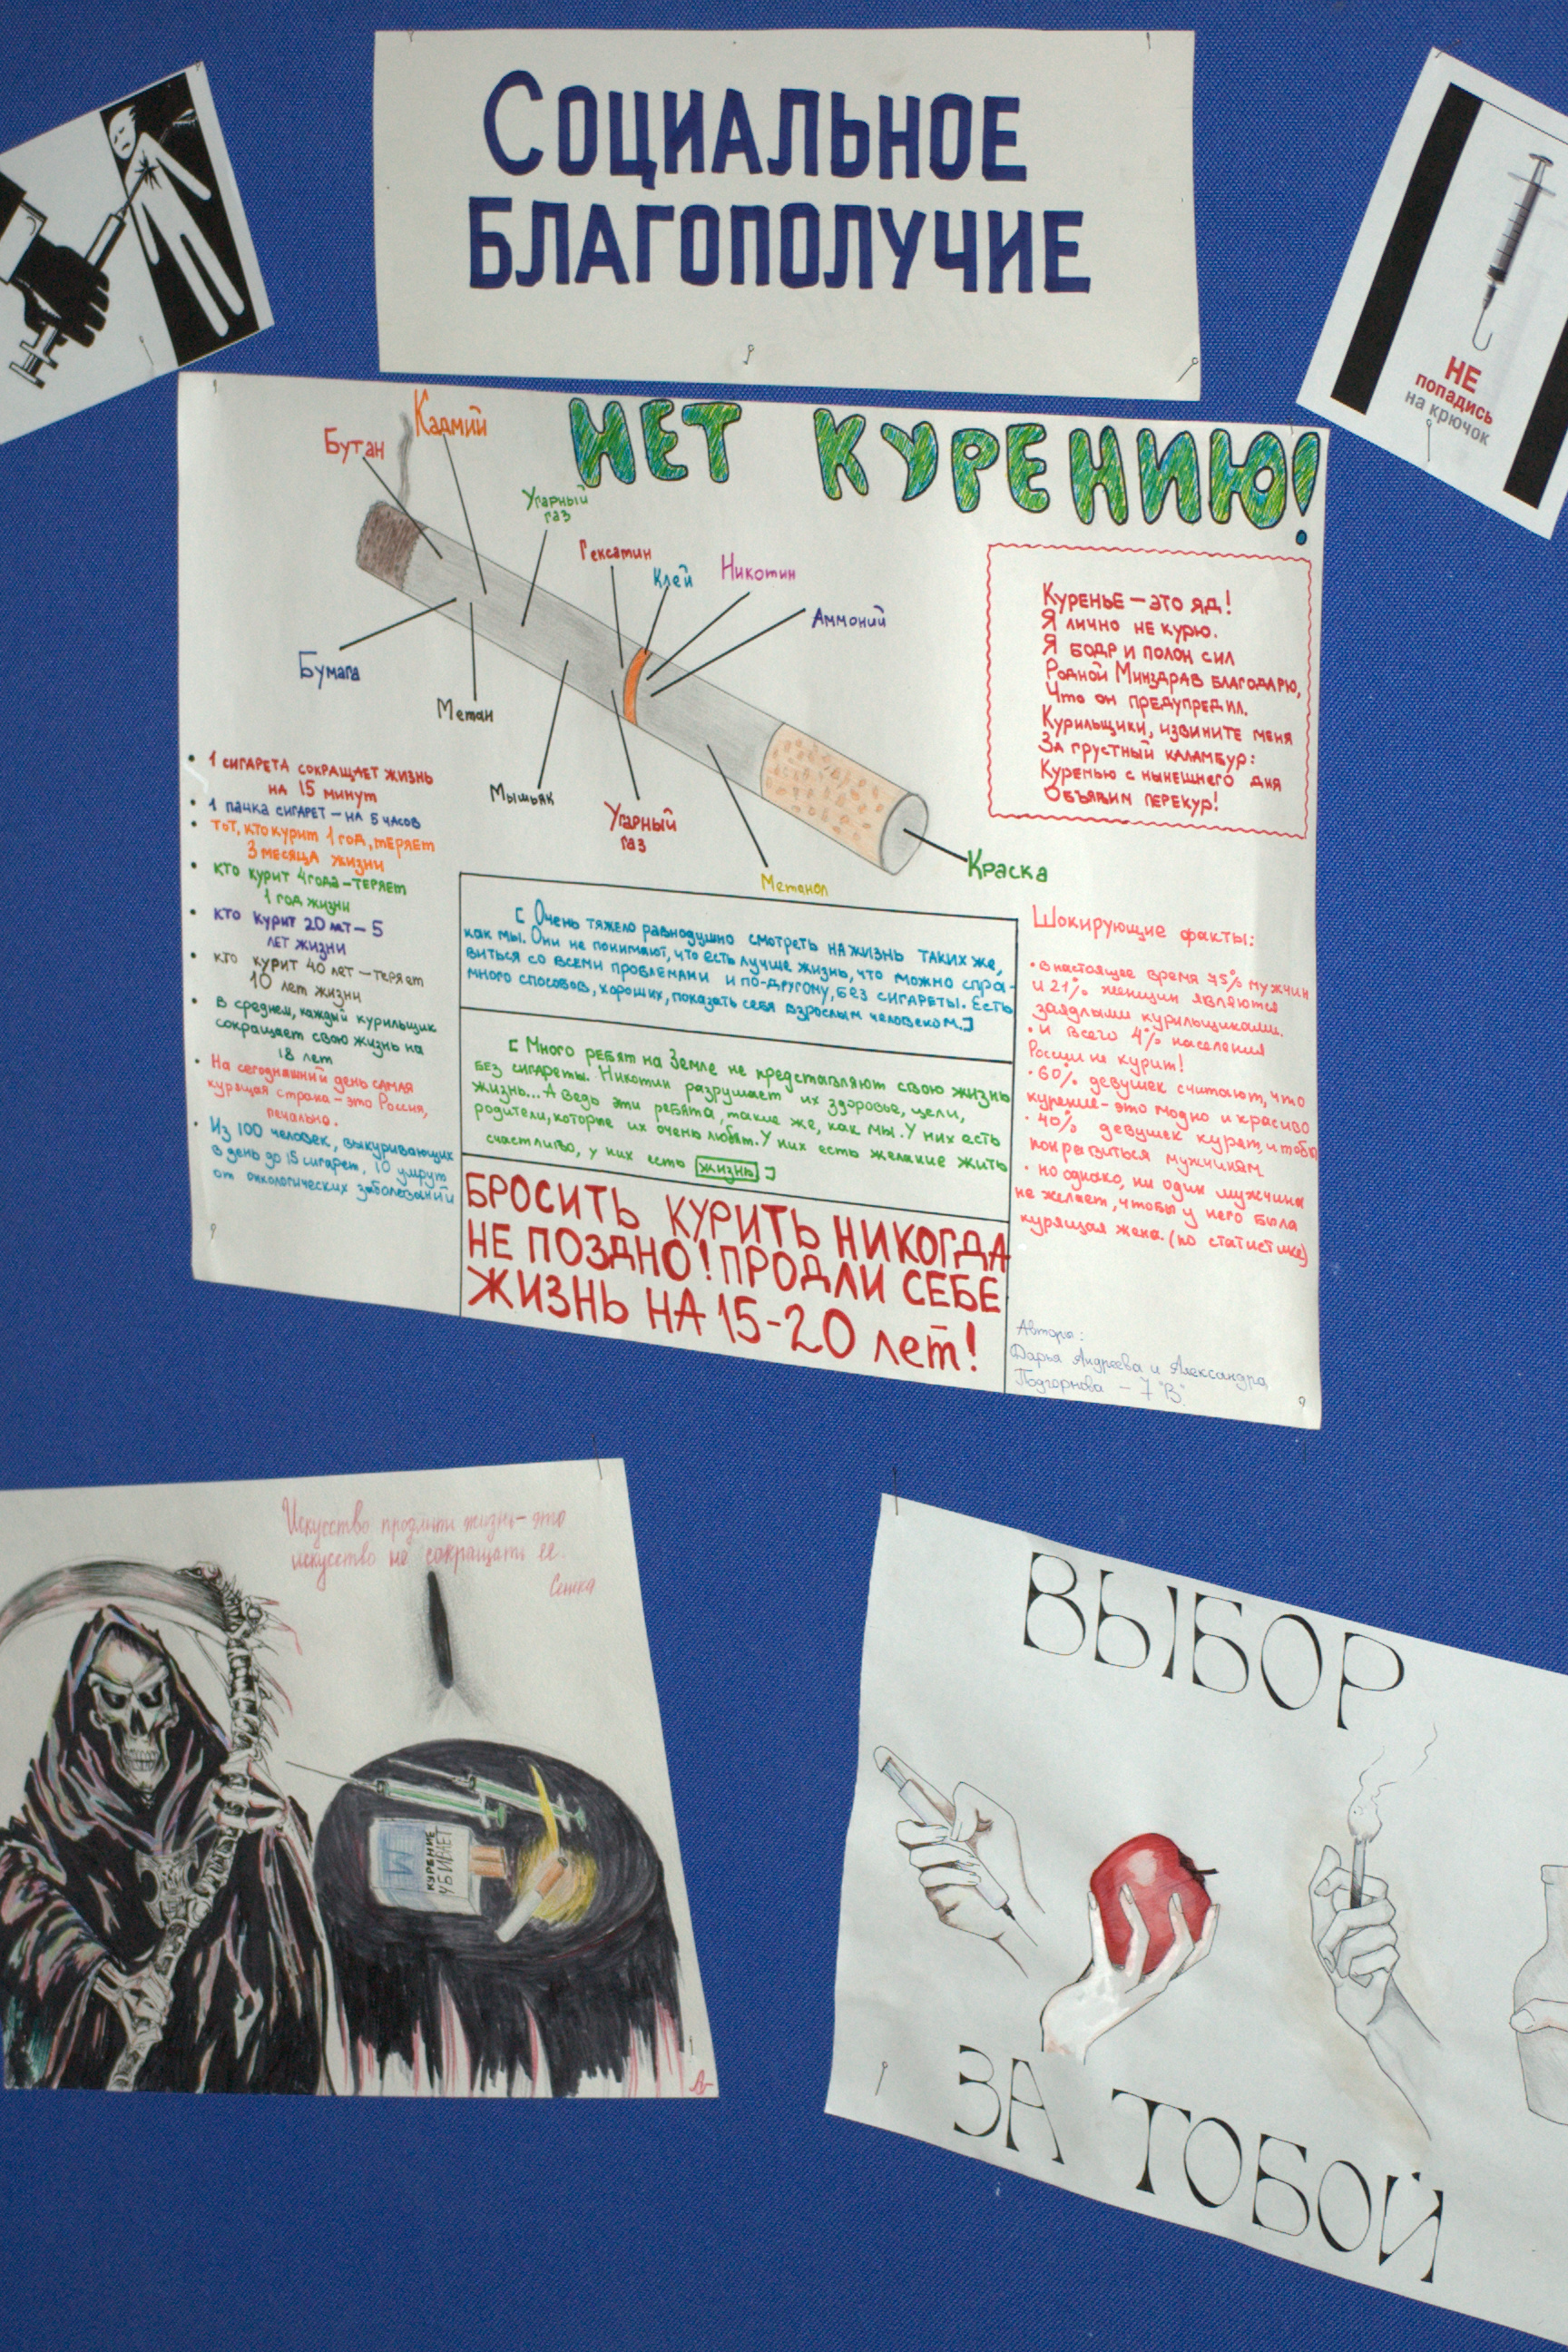 СОЦИАЛЬНОЕ
БЛАГОПОЛУЧИЕ
НЕ
попадись
на крючок
НЕТ КУРЕНИЮ!
Бутан
Кадмий
Угарный
газ
Гексатин
Клей
Никотин
Аммоний
Бумага
Метан
Мышьяк
Угарный
газ
Метанол
Краска
Куренье – это яд!
Я лично не курю.
Я бодр и полон сил
Родной Минздрав благодарю,
Что он предупредил.
Курильщики, извините меня
За грустный каламбур:
Куренью с нынешнего дня
Объявим перекур!
• 1 сигарета сокращает жизнь
на 15 минут
• 1 пачка сигарет – на 5 часов
• тот, кто курит 1 год, теряет
3 месяца жизни
• кто курит 4 года – теряет
1 год жизни
• кто курит 20 лет – 5
лет жизни
• кто курит 40 лет – теряет
10 лет жизни
• В среднем, каждый курильщик
сокращает свою жизнь на
18 лет
• На сегодняшний день самая
курящая страна – это Россия,
печально.
• Из 100 человек, выкуривающих
в день до 15 сигарет, 10 умрут
от онкологических заболеваний
[ Очень тяжело равнодушно смотреть на жизнь таких же,
как мы. Они не понимают, что есть лучше жизнь, что можно спра-
виться со всеми проблемами и по-другому, без сигареты. Есть
много способов, хороших, показать себя взрослым человеком.]
[ Много ребят на Земле не представляют свою жизнь
без сигареты. Никотин разрушает их здоровье, цели,
жизнь... А ведь эти ребята, такие же, как мы. У них есть
родители, которые их очень любят. У них есть желание жить
счастливо, у них есть жизнь ]
БРОСИТЬ КУРИТЬ НИКОГДА
НЕ ПОЗДНО! ПРОДЛИ СЕБЕ
ЖИЗНЬ НА 15-20 лет!
Шокирующие факты:
• в настоящее время 75% мужчин
и 21% женщин являются
заядлыми курильщиками.
• И всего 4% населения
России не курит!
• 60% девушек считают, что
курение – это модно и красиво
• 40% девушек курят, чтобы
понравиться мужчинам
• но однако, ни один мужчина
не желает, чтобы у него была
курящая жена. (по статистике)
Авторы:
Дарья Андреева и Александра
Подгорнова – 7 "В".
Искусство продлить жизнь – это
искусство не сокращать ее.
Сенека
КУРЕНИЕ
УБИВАЕТ
ВЫБОР
ЗА ТОБОЙ